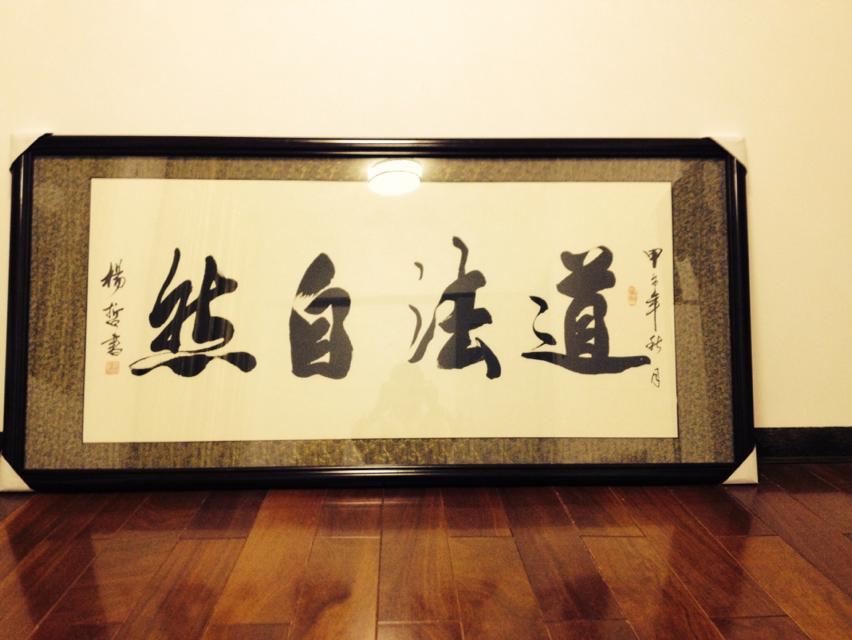 甲午年秋月
道法自然
楊哲書